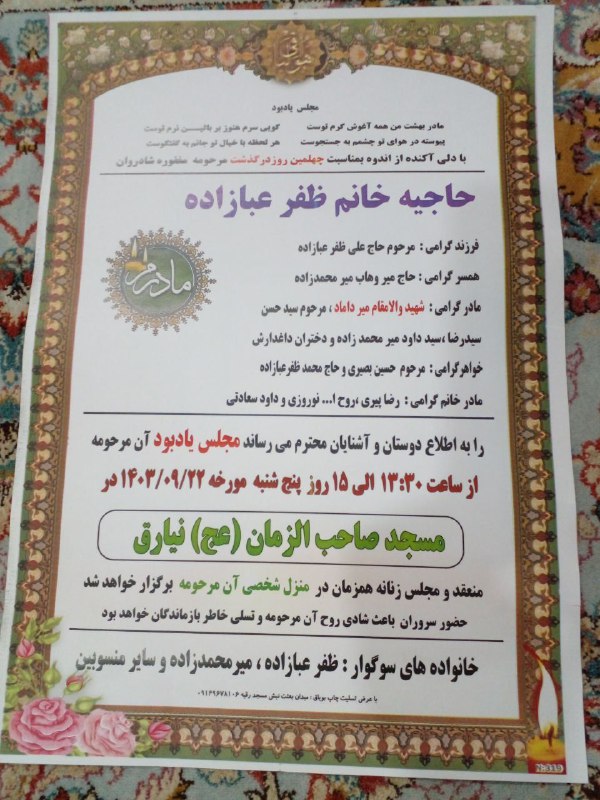 هو الباقی
مجلس یادبود
مادر بهشت من همه آغوش گرم توست گویی سرم هنوز بر بالین نرم توست
پیوسته در هوای تو چشمم به جستجوست هر لحظه با خیال تو جانم به گفتگوست
با دلی آکنده از اندوه بمناسبت چهلمین روز درگذشت مرحومه مغفوره شادروان
حاجیه خانم ظفر عبازاده
مادرم
فرزند گرامی : مرحوم حاج علی ظفر عبازاده
همسر گرامی : حاج میر وهاب میر محمدزاده
مادر گرامی : شهید والامقام میر داماد ، مرحوم سید حسن
سیدرضا ،سید داود میر محمد زاده و دختران داغدارش
خواهرگرامی : مرحوم حسین بصیری و حاج محمد ظفرعبازاده
مادر خانم گرامی : رضا پیری ،روح ا... نوروزی و داود سعادتی
را به اطلاع دوستان و آشنایان محترم می رساند مجلس یادبود آن مرحومه
از ساعت ۱۳:۳۰ الی ۱۵ روز پنج شنبه مورخه ۱۴۰۳/۰۹/۲۲ در
مسجد صاحب الزمان (عج) نیارق
منعقد و مجلس زنانه همزمان در منزل شخصی آن مرحومه برگزار خواهد شد
حضور سروران باعث شادی روح آن مرحومه و تسلی خاطر بازماندگان خواهد بود
خانواده های سوگوار : ظفر عبازاده ، میرمحمدزاده و سایر منسوبین
با عرض تسلیت چاپ بویاق : میدان بعثت نبش مسجد رقیه ۰۹۱۴۹۶۷۸۱۰۶
N:319